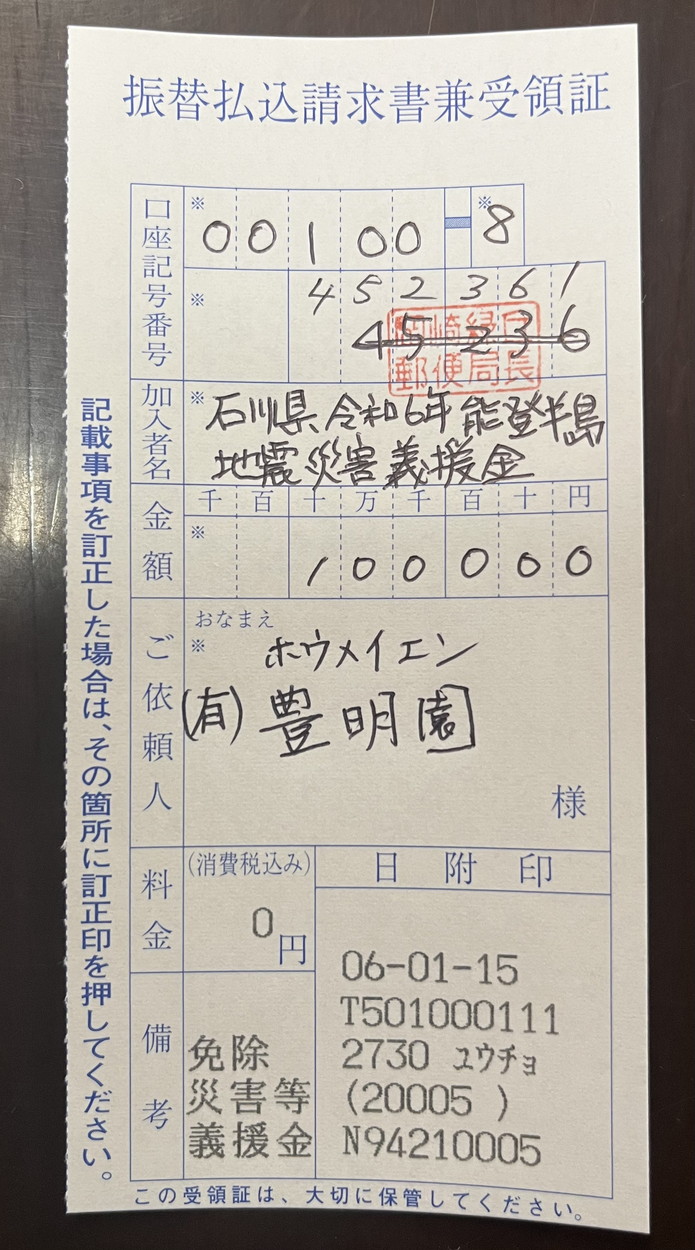 振替払込請求書兼受領証
口座記号番号
※ 00100-※8
※ 452361
45236
郵便局長
加入者名
※ 石川県令和6年能登半島
地震災害義援金
金額
千 百 十 万 千 百 十 円
※ 100000
ご依頼人
おなまえ
※ ホウメイエン
(有)豊明園
様
料金
(消費税込み)
0円
日附印
06-01-15
T501000111
2730 ユウチョ
(20005 )
N94210005
備考
免除
災害等
義援金
この受領証は、大切に保管してください。
記載事項を訂正した場合は、その箇所に訂正印を押してください。